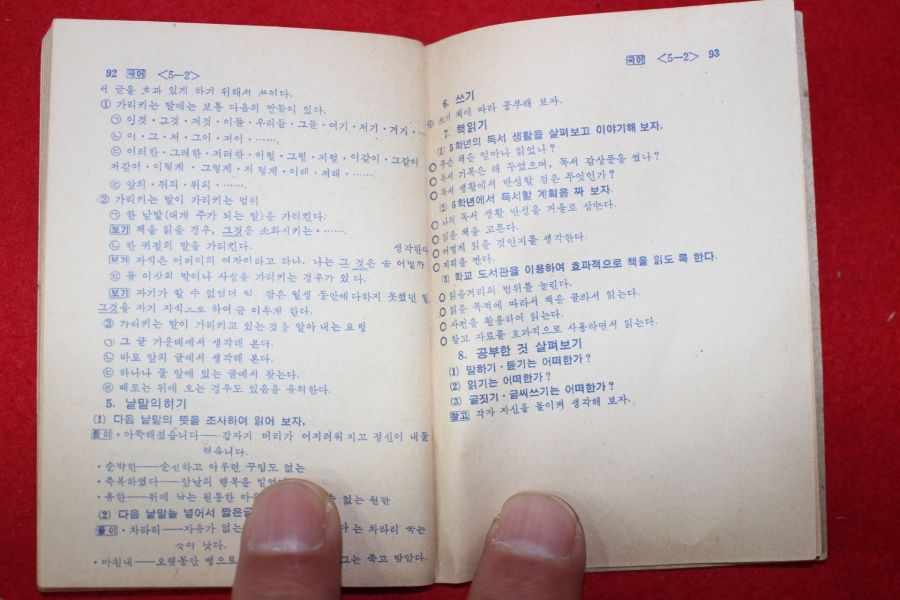 92 국어 <5—2>
서 글을 효과 있게 하기 위해서 쓰이다.
① 가리키는 말에는 보통 다음의 말들이 있다.
㉠ 이것·그것·저것·이들·우리들·그들·여기·저기·거기·…
㉡ 이·그·저·그이·저이·…….
㉢ 이러한·그러한·저러한·이럴·그럴·저럴·이같이·그같이
저같이·이렇게·그렇게·저렇게·이때·저때·…….
㉢ 앞의·뒤의·위의·…….
② 가리키는 말이 가리키는 범위
㉠ 한 낱말(대개 주가 되는 말)을 가리킨다.
보기 책을 읽을 경우, 그것을 소화시키는·…….
㉡ 한 귀절의 말을 가리킨다.
생각한다
보기 자식은 어버이의 여장이라고 하나, 나는 그 것은 좀 어떨까
㉢ 둘 이상의 말이나 사실을 가리키는 경우가 있다.
보기 자기가 할 수 없었던 일, 짧은 일생 동안에 다하지 못했던 일,
그것을 자기 자식으로 하여금 이루게 한다.
③ 가리키는 말이 가리키고 있는 것을 알아 내는 요령
㉠ 그 글 가운데에서 생각해 본다.
㉡ 바로 앞의 글에서 생각해 본다.
㉢ 하나나 둘 앞에 있는 글에서 찾는다.
㉣ 때로는 뒤에 오는 경우도 있음을 유의한다.
5. 낱말익히기
(1) 다음 낱말의 뜻을 조사하여 읽어 보자,
풀이·아뜩해졌읍니다——갑자기 머리가 어지러워지고 정신이 내둘
렸읍니다.
·순박한——순진하고 아무런 꾸밈도 없는
·축복하였다——앞날의 행복을 빌었
·유한——뒤에 남는 원통한 마음 없는 원한
(2) 다음 낱말을 넣어서 짧은글
풀이·차라리——자유가 없는 다는 차라리 죽는
것이 낫다.
·마침내——오랫동안 병으로 그는 죽고 말았다.
국어 <5—2> 93
6. 쓰기
쓰기 책에 따라 공부해 보자.
7. 책읽기
(1) 5학년의 독서 생활을 살펴보고 이야기해 보자.
○ 무슨 책을 얼마나 읽었나?
○ 독서 기록은 해 두었으며, 독서 감상문을 썼나?
○ 독서 생활에서 반성할 점은 무엇인가?
(2) 6학년에서 독서할 계획을 짜 보자.
○ 나의 독서 생활 반성을 거울로 삼는다.
○ 읽을 책을 고른다.
○ 어떻게 읽을 것인지를 생각한다.
○ 계획을 짠다.
(3) 학교 도서관을 이용하여 효과적으로 책을 읽도록 한다.
○ 읽을거리의 범위를 늘린다.
○ 읽을 목적에 따라서 책은 골라서 읽는다.
○ 사전을 활용하여 읽는다.
○ 참고 자료를 효과적으로 사용하면서 읽는다.
8. 공부한 것 살펴보기
(1) 말하기·듣기는 어떠한가?
(2) 읽기는 어떠한가?
(3) 글짓기·글씨쓰기는 어떠한가?
참고 각자 자신을 돌이켜 생각해 보자.